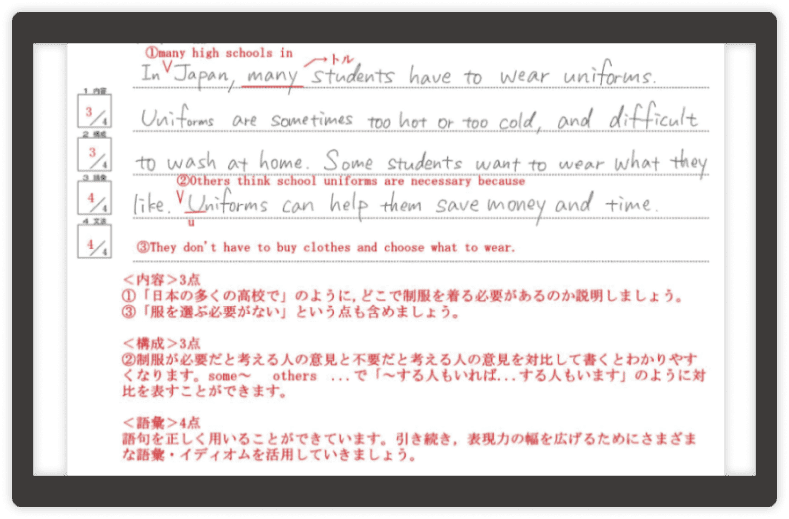 ①many high schools in
→トル
In Japan, many students have to wear uniforms.
1 内容
3/4
Uniforms are sometimes too hot or too cold, and difficult
2 構成
3/4
to wash at home. Some students want to wear what they
②Others think school uniforms are necessary because
3 語彙
4/4
like. Uniforms can help them save money and time.
u
4 文法
4/4
③They don't have to buy clothes and choose what to wear.
＜内容＞3点
①「日本の多くの高校で」のように,どこで制服を着る必要があるのか説明しましょう。
③「服を選ぶ必要がない」という点も含めましょう。
＜構成＞3点
②制服が必要だと考える人の意見と不要だと考える人の意見を対比して書くとわかりやす
くなります。some～ others ...で「～する人もいれば...する人もいます」のように対
比を表すことができます。
＜語彙＞4点
語句を正しく用いることができています。引き続き，表現力の幅を広げるためにさまざま
な語彙・イディオムを活用していきましょう。